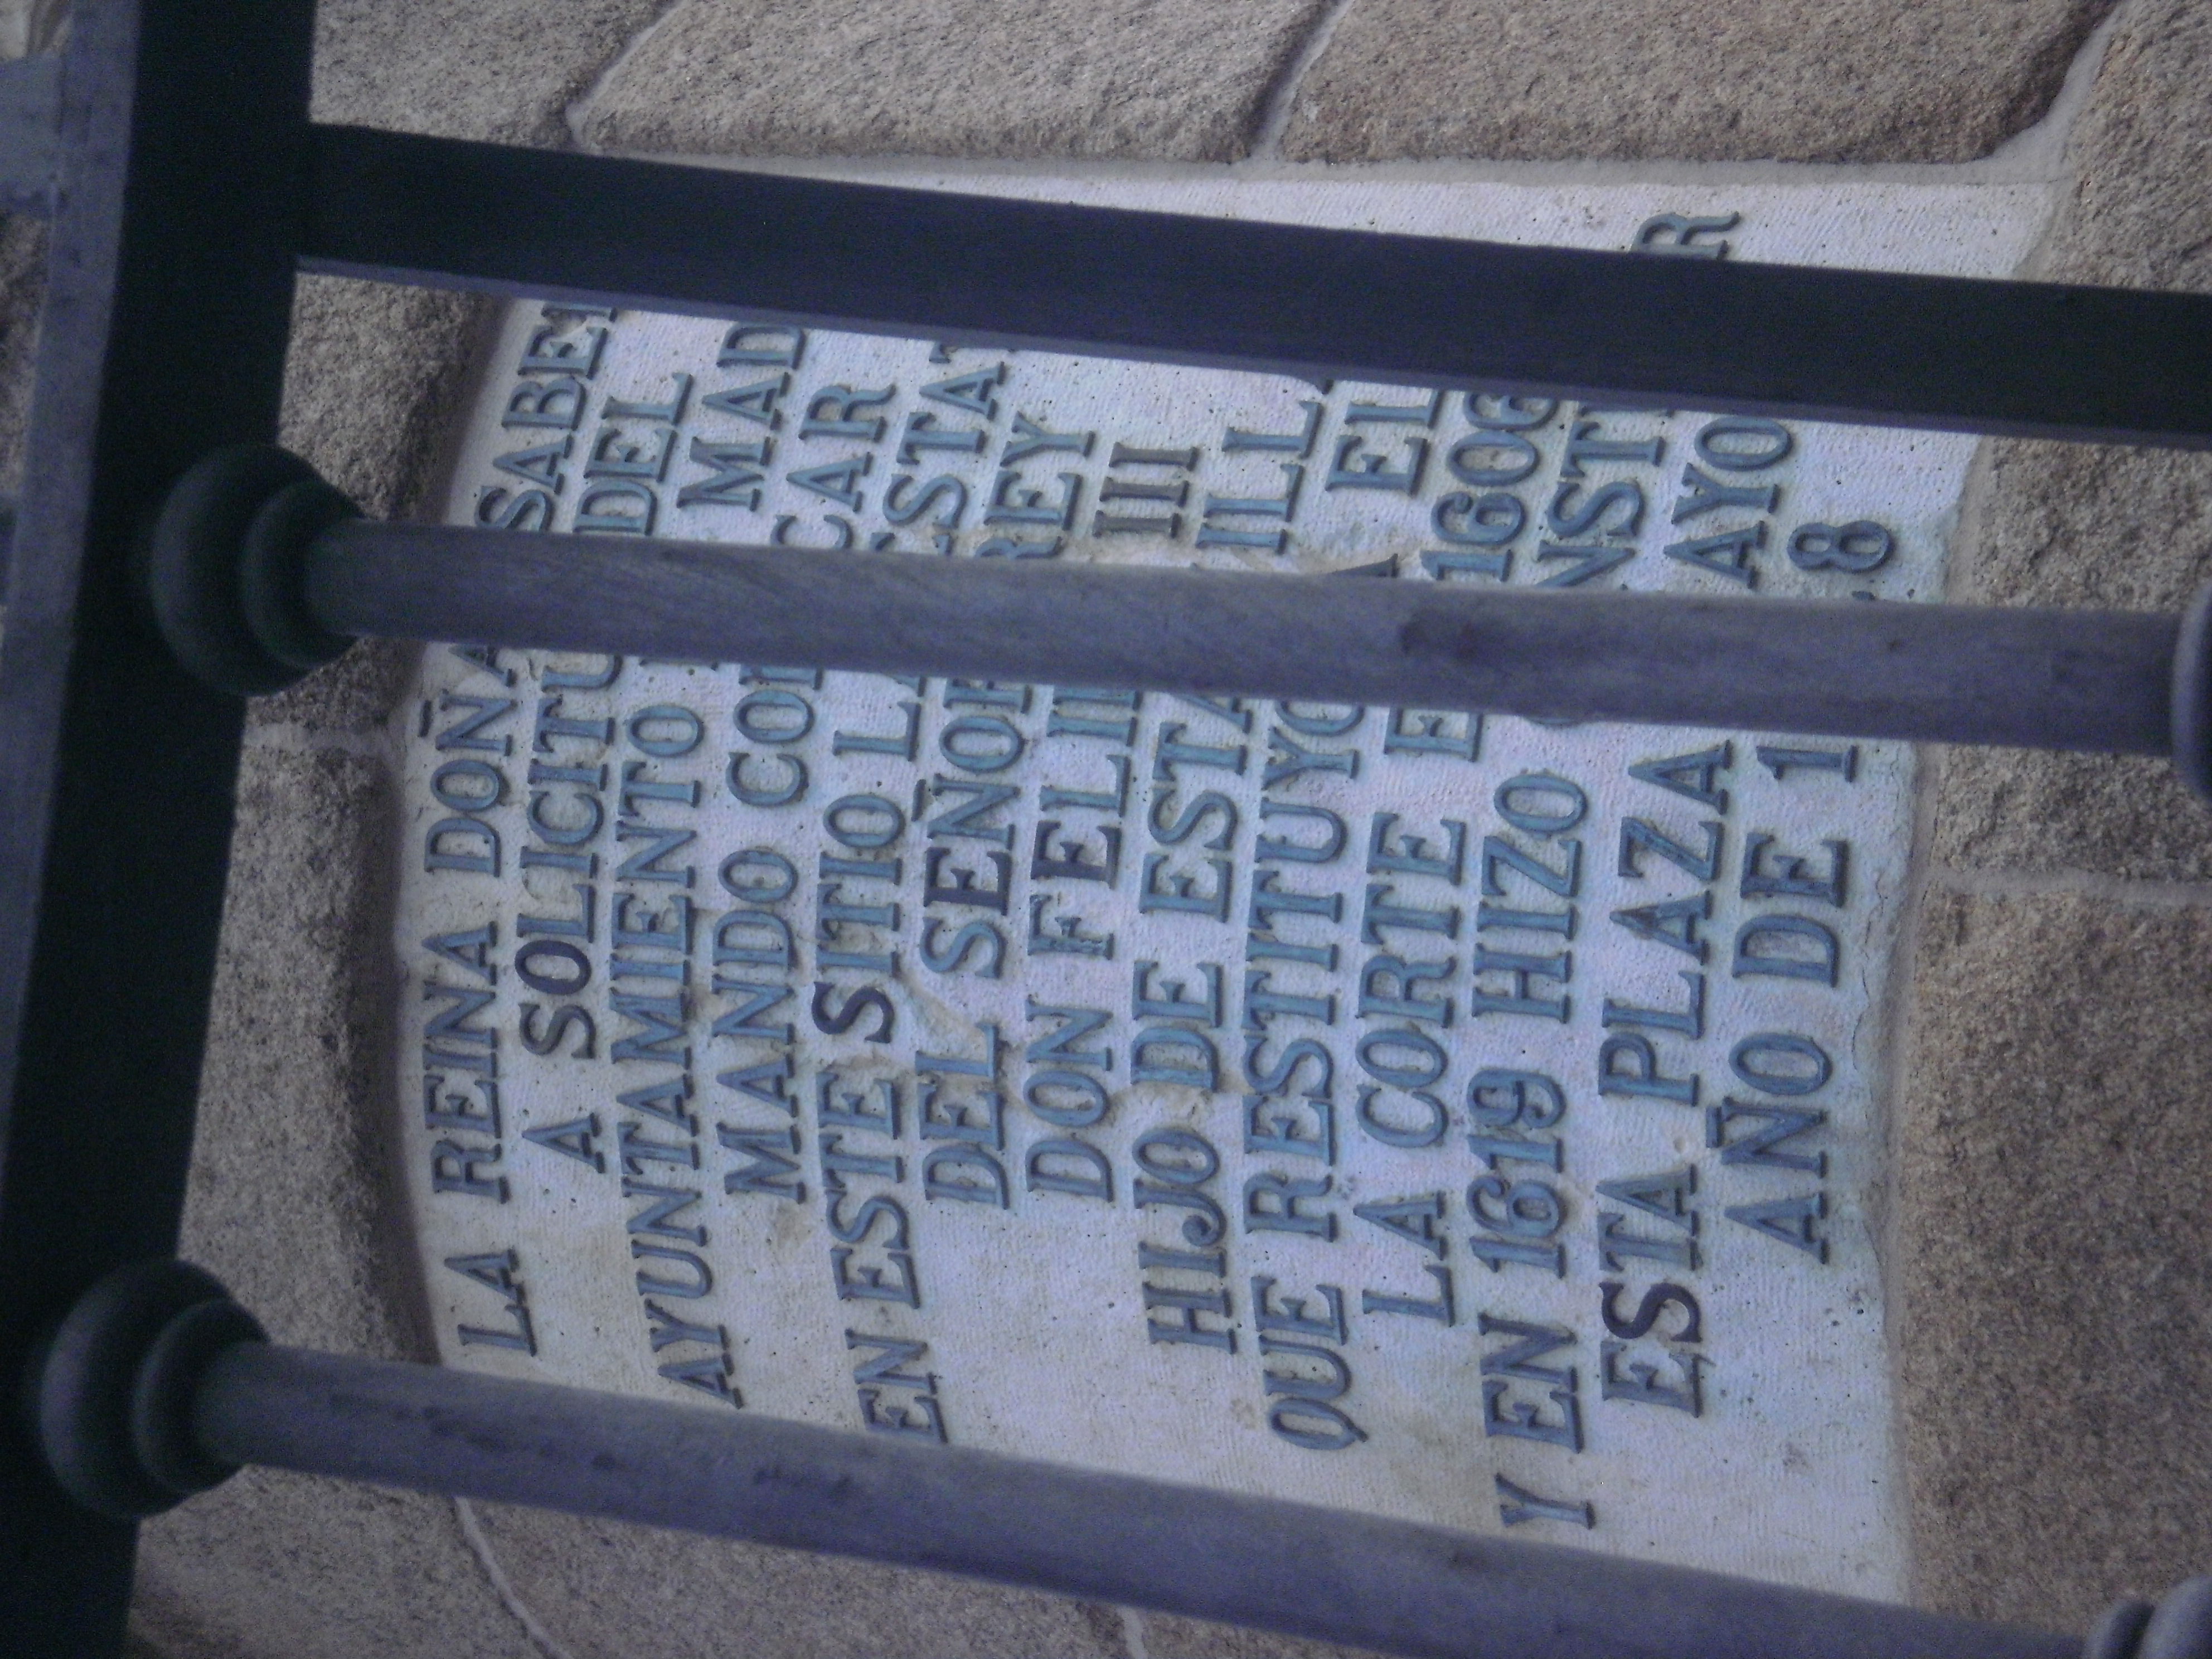 LA REINA DOÑA ISABEL
A SOLICITUD DEL
AYUNTAMIENTO MADRID
MANDO COLOCAR
EN ESTE SITIO LA ESTATUA
DEL SEÑOR REY
DON FELIPE III
HIJO DE ESTA VILLA
QUE RESTITUYO A ELLA
LA CORTE EN 1606
Y EN 1619 HIZO CONSTRUIR
ESTA PLAZA MAYOR
AÑO DE